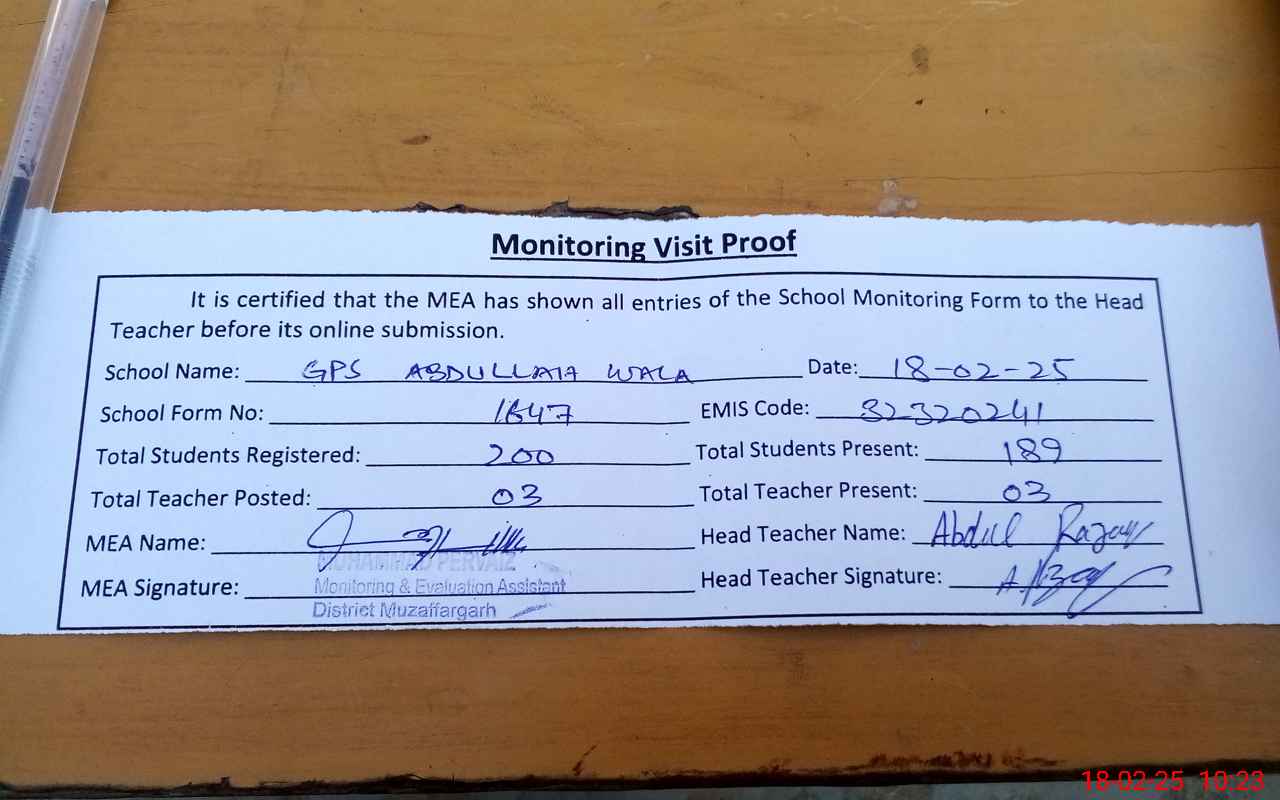 Monitoring Visit Proof
It is certified that the MEA has shown all entries of the School Monitoring Form to the Head
Teacher before its online submission.
School Name: GPS ABDULLAH WALA Date: 18-02-25
School Form No: 1647 EMIS Code: 32320241
Total Students Registered: 200 Total Students Present: 189
Total Teacher Posted: 03 Total Teacher Present: 03
MEA Name: Head Teacher Name: Abdul
MUHAMMAD PERVAIZ
MEA Signature: Monitoring & Evaluation Assistant Head Teacher Signature:
District Muzaffargarh
18-02-25 10:23